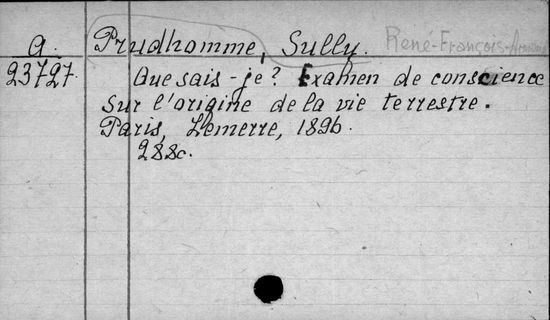 A. Prudhomme, Sully. René-François-Armand
23727. Que sais-je? Examen de conscience
sur l'origine de la vie terrestre.
Paris, Lemerre, 1896.
288c.